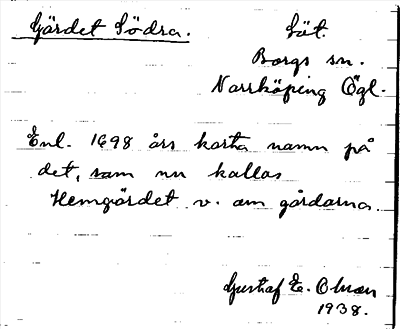 Gärdet Södra. Löt.
Borgs sn.
Norrköping Ögl.
Enl. 1698 års karta namn på
det, som nu kallas
Hemgärdet v. om gårdarna.
Gustaf E. Olson
1938.